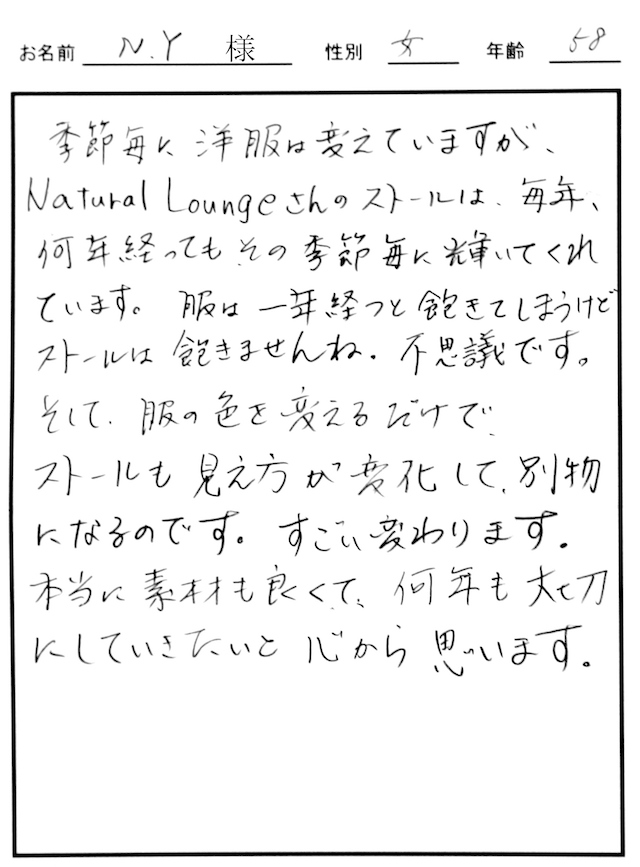 お名前 N.Y 様 性別 女 年齢 58
季節毎に洋服は変えていますが、
Natural Loungeさんのストールは、毎年、
何年経ってもその季節毎に輝いてくれ
ています。服は一年経つと飽きてしまうけど
ストールは飽きませんね。不思議です。
そして、服の色を変えるだけで、
ストールも見え方が変化して、別物
になるのです。すごい変わります。
本当に素材も良くて、何年も大切
にしていきたいと心から思います。